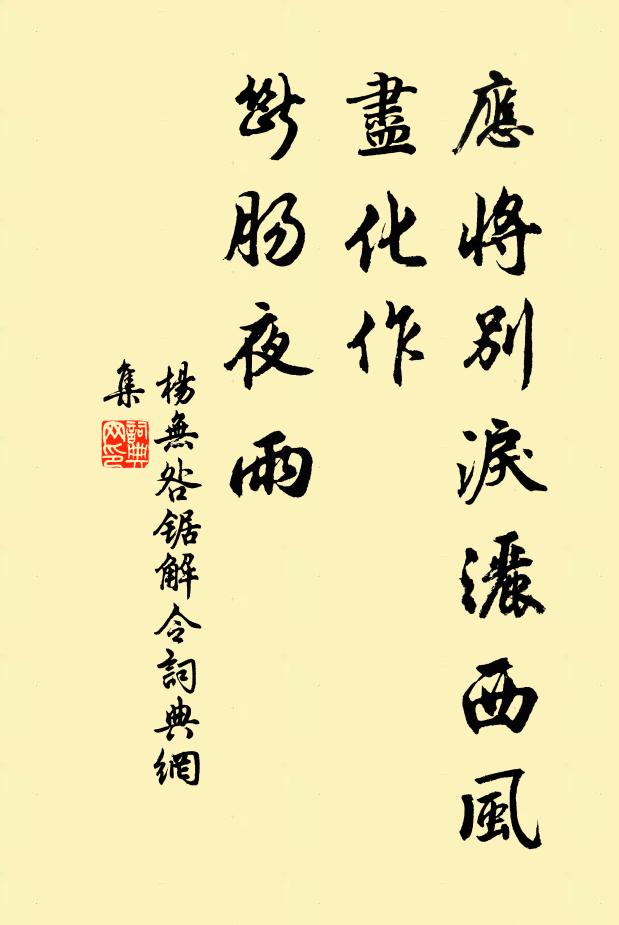 應將別淚灑西風
盡化作
斷肠夜雨
楊無咎锯解令詞典網
集
詞典
网印